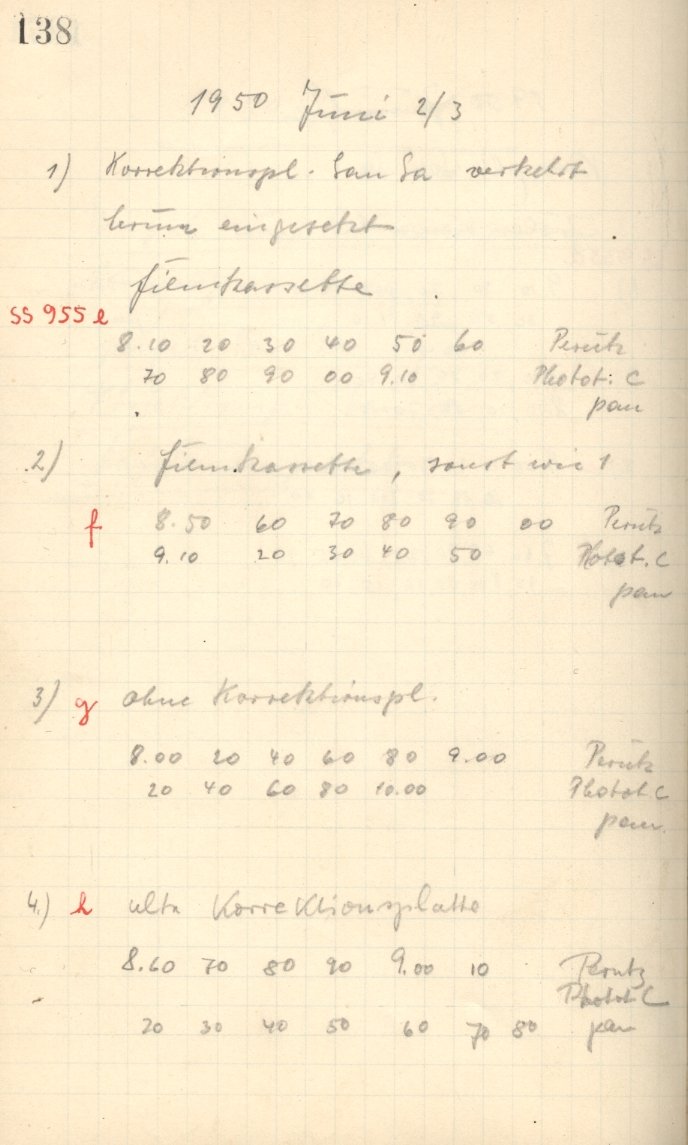 138
1950 Juni 2/3
1) Korrektionspl. verkehrt
eingesetzt
Filmkassette
SS 955 e
8.10 20 30 40 50 60 Perutz
70 80 90 00 9.10 Photot. C
pan
2) Filmkassette, sonst wie 1
f 8.50 60 70 80 90 00 Perutz
9.10 20 30 40 50 Photot. C
pan
3) g ohne Korrektionspl.
8.00 20 40 60 80 9.00 Perutz
20 40 60 80 10.00 Photot. C
pan.
4.) h alte Korrektionsplatte
8.60 70 80 90 9.00 10 Perutz
Photot C
20 30 40 50 60 70 80 pan